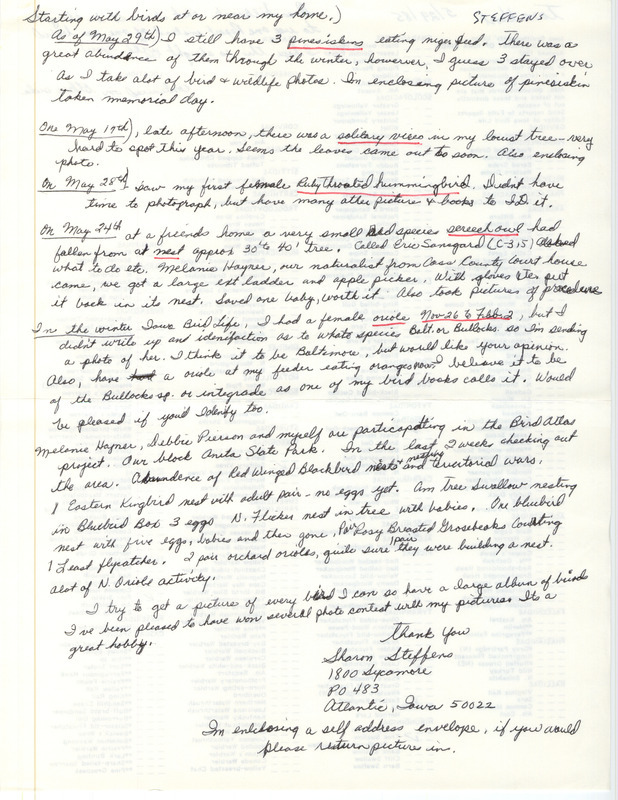 Starting with birds at or near my home.)
STEFFENS
As of May 29th) I still have 3 pinesiskens eating niger feed. There was a
great abundance of them through the winter, however, I guess 3 stayed over
As I take alot of bird & wildlife photos. Im enclosing picture of pinesiskin
taken memorial day.
One May 17th), late afternoon, there was a solitary vireo in my locust tree - very
hard to spot this year. Seems the leaves came out to soon. Also enclosing
photo.
On May 28th I saw my first female Rubythroated hummingbird. Didnt have
time to photograph, but have many other pictures & books to I.D. it.
On May 24th at a friends home a very small Red species screech owl had
fallen from at nest approx 30' to 40' tree. Called Eric Sansgard (C-315)
what to do etc. Melanie Hayner, our naturalist from Cass County Court house
came, we got a large ext ladder and apple picker. With gloves etc. put
it back in its nest. Saved one baby, worth it. Also took pictures of procedure
In the winter Iowa Bird Life, I had a female oriole Nov 26 to Feb 2, but I
didn't write up and idenifaction as to whats species Balt. or Bullocks. so Im sending
a photo of her. I think it to be Baltimore, but would like your opinion.
Also, have a oriole at my feeder eating oranges now I beleave it to be
of the Bullocks sp. or intergrade as one of my bird books calls it. Would
be pleased if you'd Idenify too.
Melanie Hayner, Debbie Pierson and myself are participating in the Bird Atlas
project. Our block Anita State Park. In the last 2 weeks checking out
the area. Abundence of Red Winged Blackbird nests nesting and teveritorial wars.
1 Eastern Kingbird nest with adult pair - no eggs yet. Am Tree Swallow nesting
in Bluebird Box 3 eggs N. Flicker nest in tree with babies. One bluebird
nest with five eggs, babies and then gone, Pair Rosy Breasted Grosebeaks Courting
1 Least flycatcher. 2 pair orchard orioles, quite sure 1 pair they were building a nest.
alot of N. Oriole activity.
I try to get a picture of every bird I can so have a large album of birds
I've been pleased to have won several photo contest with my pictures Its a
great hobby.
Thank You
Sharon Steffens
1800 Sycamore
PO 483
Atlantic, Iowa 50022
Im enclosing a self address envelope, if you would
please return picture in.